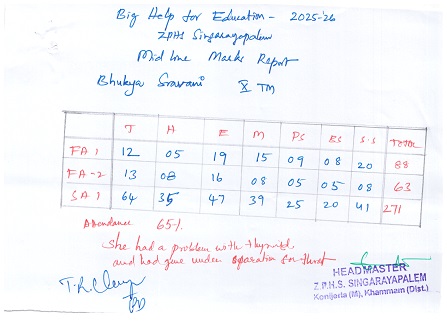 Big Help for Education - 2025-26
ZPHS Singarayapalem
Mid line Marks Report
Bhukya Sravani X TM
T H E M PS BS S.S Total
FA 1 12 05 19 15 09 08 20 88
FA-2 13 08 16 08 05 05 08 63
SA 1 64 35 47 39 25 20 41 271
Attendance 65%
She had a problem with thyroid
and had gone under operation for throat
HEADMASTER
Z.P.H.S. SINGARAYAPALEM
Konijerla (M), Khammam (Dist.)